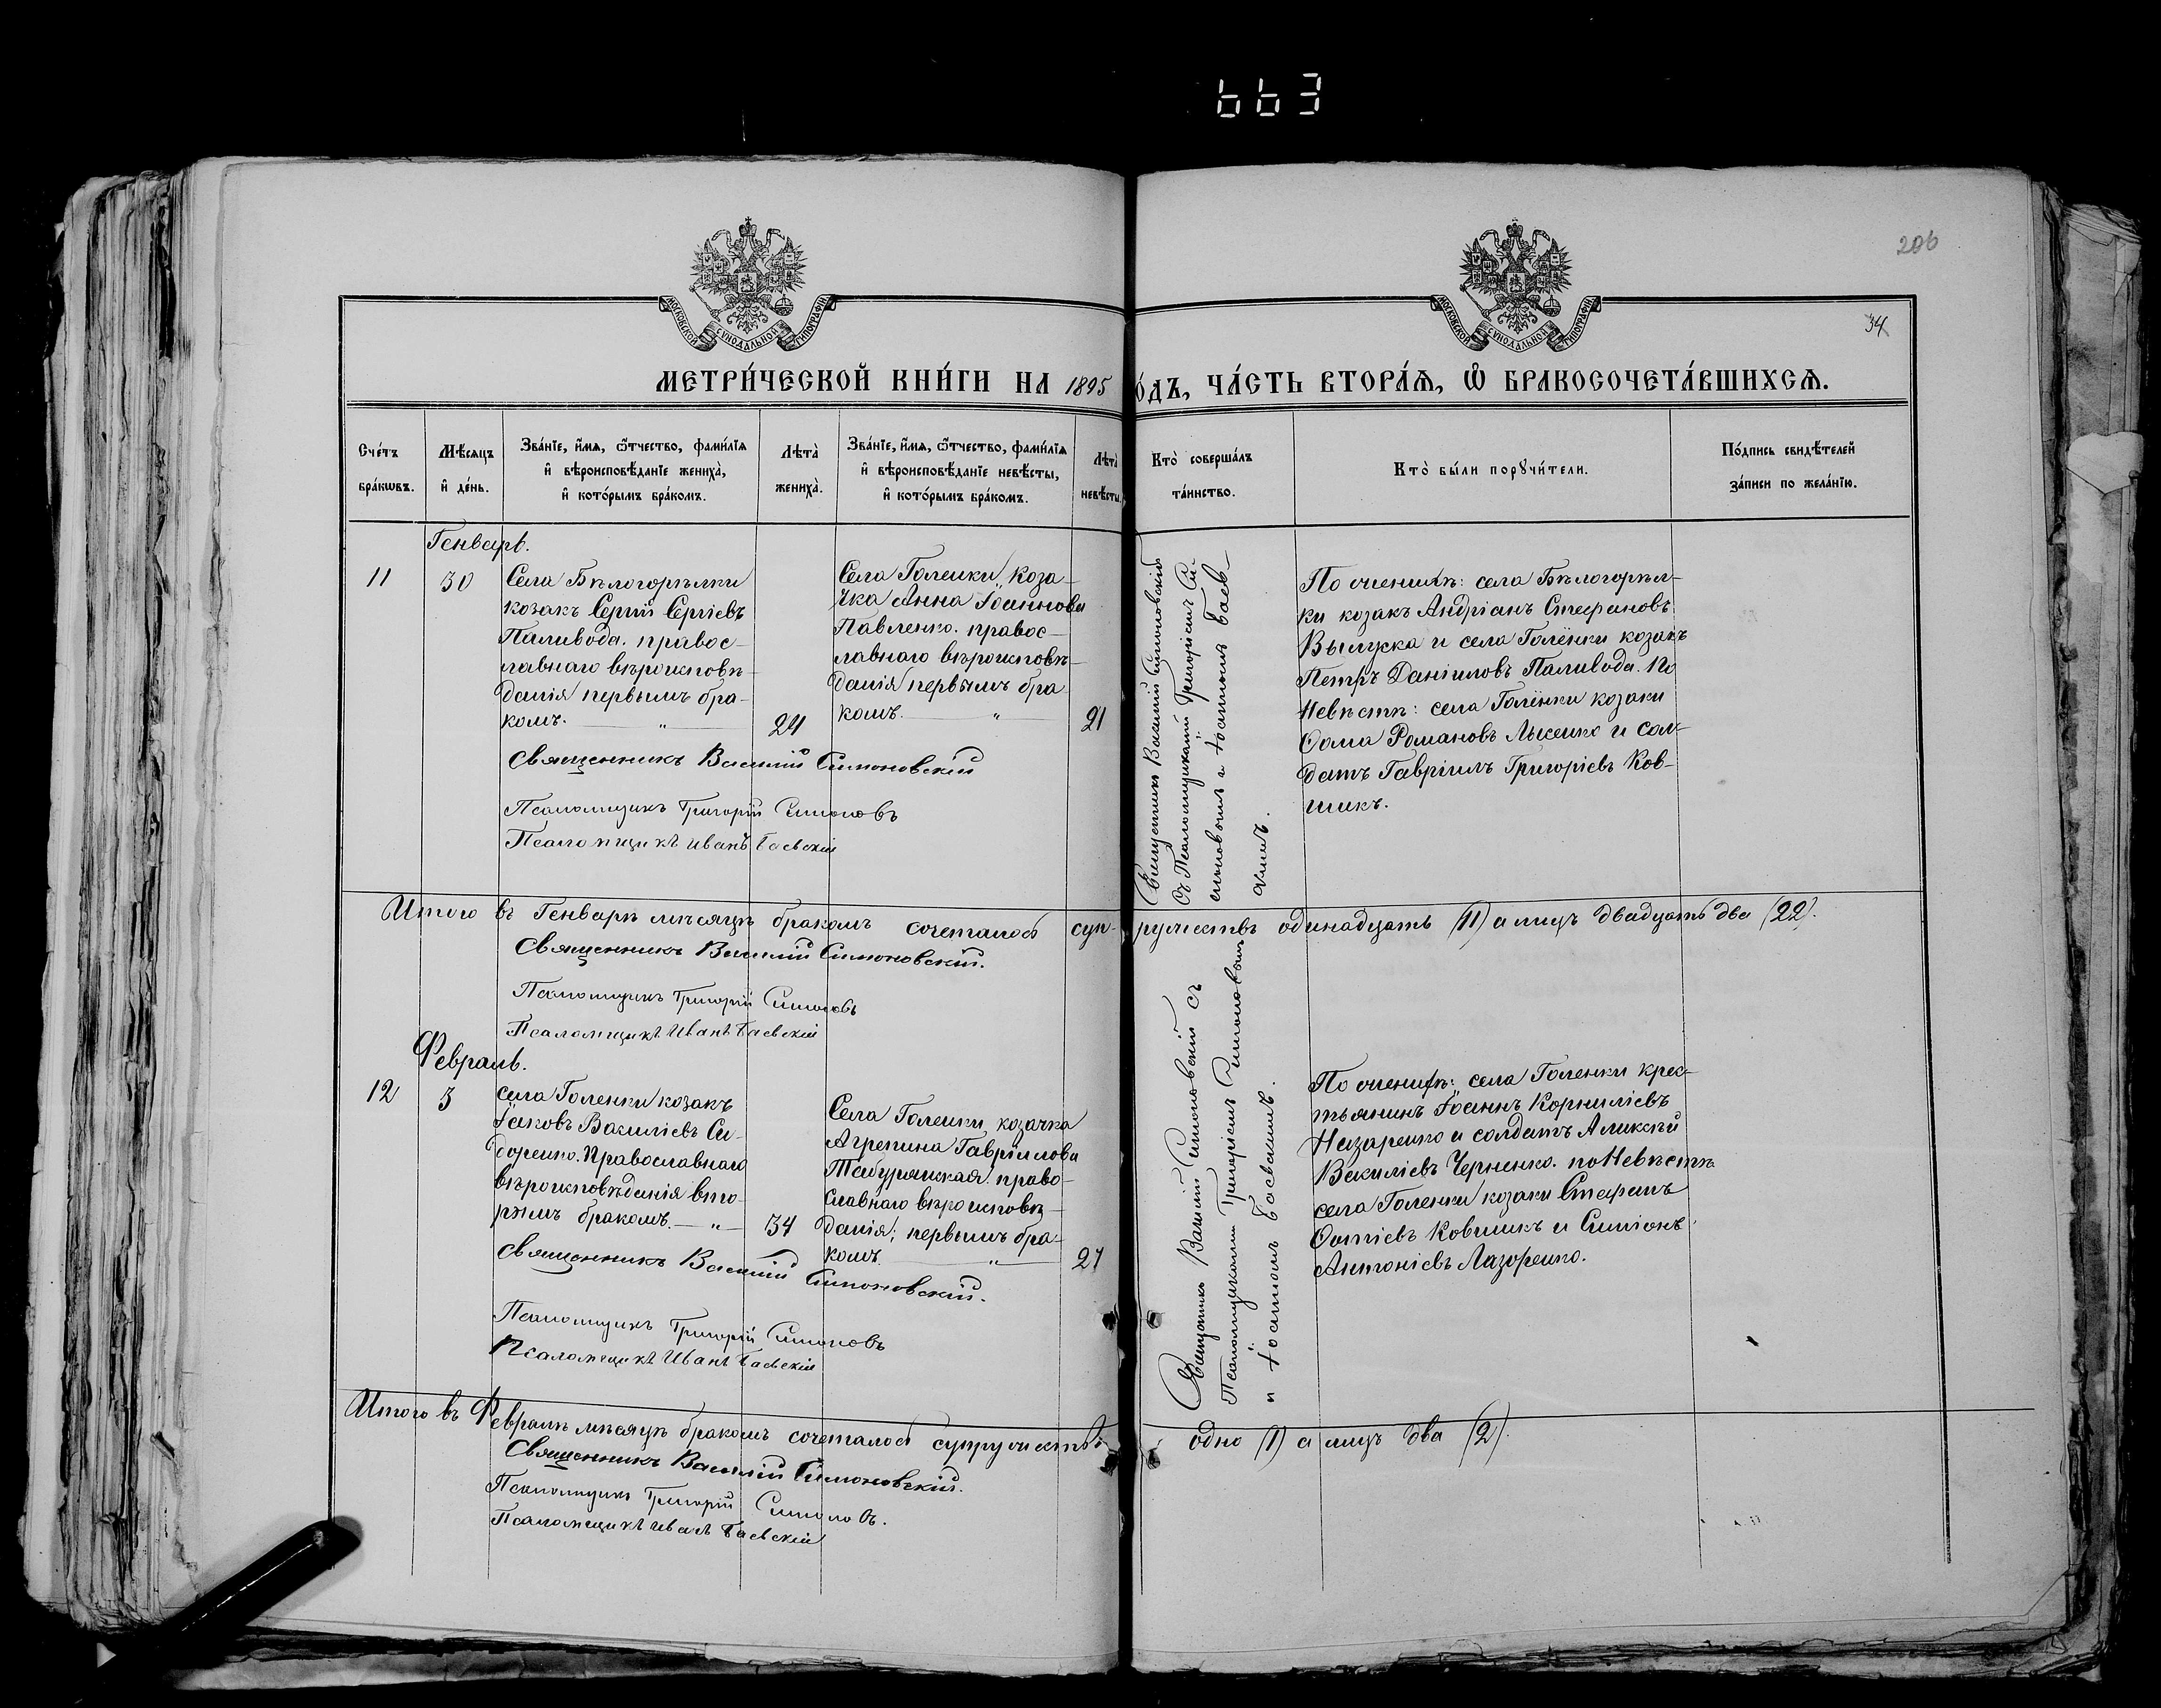 663
206
34
МОСКОВСКОЙ СУНОДАЛЬНОЙ ТИПОГРАФІИ
МОСКОВСКОЙ СУНОДАЛЬНОЙ ТИПОГРАФІИ
МЕТРИ́ЧЕСКОЙ КНИ́ГИ НА 1895 О́ДЪ, ЧА́СТЬ ВТОРА́Я, Ѡ БРАКОСОЧЕТА́ВШИХСЯ.
Сче́тъ бра́кѡвъ.
Мѣ́сяцъ и҆ де́нь.
Зва́нїе, и҆́мя, ѻ҆́тчество, фами́лїя
и҆ вѣроисповѣ́данїе жениха̀,
и҆ кото́рымъ бра́комъ.
Лѣта̀ жениха̀.
Зва́нїе, и҆́мя, ѻ҆́тчество, фами́лїя
и҆ вѣроисповѣ́данїе невѣ́сты,
и҆ кото́рымъ бра́комъ.
Лѣта̀ невѣ́сты
Кто̀ соверша́лъ та́инство.
Кто̀ бы́ли порꙋчи́тели.
По́дпись свидѣ́телей за́писи по жела́нїю.
Генварь.
11
30
Села Бѣлогорѣлки
козакъ Сергій Сергіевъ
Паливода. правос-
лавнаго вѣроисповѣ-
данія первымъ бра-
комъ. „
24
Села Голенки, коза-
чка Анна Іоаннова
Павленко. правос-
лавнаго вѣроисповѣ-
данія первымъ бра
комъ. „
21
Священникъ Василій Симоновскій
съ Псаломщиками Григоріемъ Си-
моновымъ и Іоанномъ Баев-
скимъ.
По женихѣ: села Бѣлогорѣл-
ки козакъ Андріанъ Стефановъ
Выпуска и села Голёнки козакъ
Петръ Даніиловъ Паливода. По
Невѣстѣ: села Голёнки козаки
Ѳома Романовъ Лысенко и сол-
датъ Гавріилъ Григоріевъ Ков-
шикъ.
Священникъ Василій Симоновскій
Псаломщикъ Григорій Симоновъ
Псаломщикъ Иванъ Баевскій
Итого въ Генварѣ мѣсяцѣ бракомъ сочеталось суп-ружествъ одинадцать (11) а лицъ двадцать два (22).
Священникъ Василій Симоновскій.
Псаломщикъ Григорій Симоновъ
Псаломщикъ Иванъ Баевскій
Февраль.
12
3
села Голенки козакъ
Іаковъ Василіевъ Си-
доренко. Православнаго
вѣроисповѣданія вто-
рымъ бракомъ. — „ —
34
Села Голенки, козачка
Агрепина Гавріилова
правo-
славнаго вѣроисповѣ-
данія; первымъ бра-
комъ. „
27
Священникъ Василій Симоновскій съ
Псаломщиками Григоріемъ Симоновымъ
и Іоанномъ Баевскимъ.
По женихѣ: села Голенки крес-
тьянинъ Іоаннъ Корниліевъ
Назаренко и солдатъ Алексѣй
Василіевъ Черненко. по Невѣстѣ
села Голенки козаки Стефанъ
Ковшикъ и Симіонъ
Антоніевъ Лазоренко.
Священникъ Василій Симоновскій.
Псаломщикъ Григорій Симоновъ
Псаломщикъ Иванъ Баевскій
Итого въ Февралѣ мѣсяцѣ бракомъ сочеталось супружествъ одно (1) а лицъ два (2).
Священникъ Василій Симоновскій.
Псаломщикъ Григорій Симоновъ.
Псаломщикъ Иванъ Баевскій